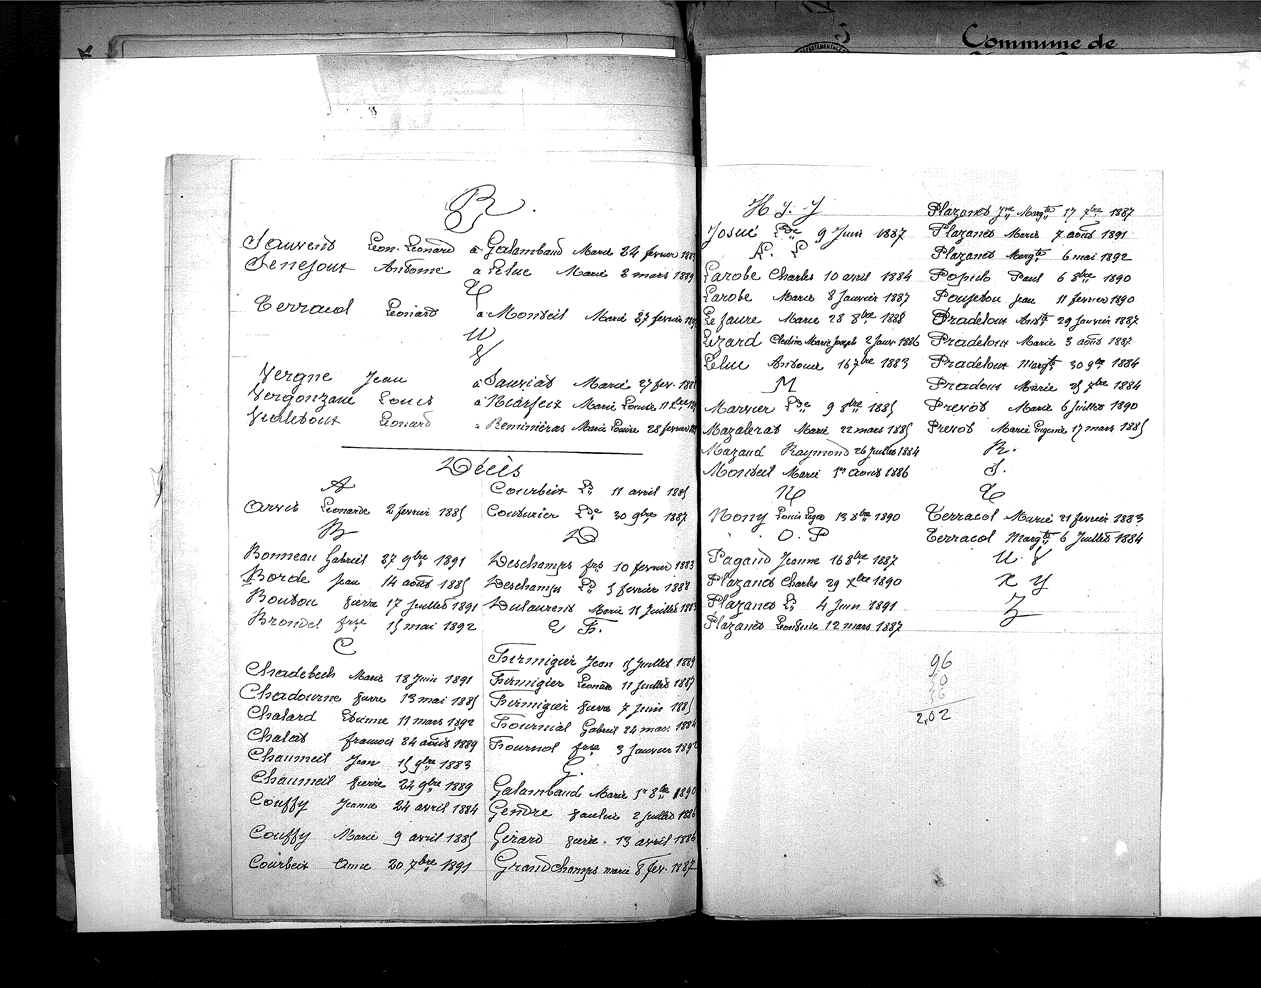 Commune de
R.
Sauvend Léon. Léonard à Galambaud Marie 24 février 188
Senejoux Antoine à Leluc Marie 8 mars 1889
T
Terracol Léonard à Monteil Marie 27 février
U
V
Vergne Jean à Sauviat Marie 27 fev. 188
Vergonzane Louis à Marfeix Marie Louise 11
Violletout Léonard à Reminiéras Marie Louise 28 février
Décès
A
Arvis Léonarde 2 février 1885
B
Bonneau Gabriel 27 9bre 1891
Borde Jean 14 août 1885
Boutou pierre 17 Juillet 1891
Brondel frse 15 mai 1892
C
Chadebech Marie 18 Juin 1891
Chadourne pierre 13 mai 1885
Chalard Etienne 11 mars 1892
Chalat francois 24 août 1889
Chaumeil Jean 15 9bre 1883
Chaumeil pierre 22 9bre 1889
Couffy Jeanne 24 avril 1884
Couffy Marie 9 avril 1885
Courbeix Anne 20 7bre 1891
Courbeix Ld 11 avril 1885
Couturier Lde 30 9bre 1887
D
Deschamps frs 10 février 1883
Deschamps Ld 5 février 1888
Dulaurent Marie 11 Juillet 188
E F.
Firmigier Jean 15 Juillet 1889
Firmigier Léonard 11 Juillet 1887
Firmigier pierre 7 Juin 1885
Fournial Gabriel 24 mars 188
Fournol frse 3 Janvier 1892
G.
Galambaud Marie 1er 8bre 1890
Gendre pauline 2 Juillet 1886
Girard pierre. 13 avril 1886
Grandchamps marie 8 fev. 1887
H I. J
Josué Lde 9 Juin 1887
K. L
Larobe Charles 10 avril 1884
Larobe Marie 8 Janvier 1887
Lefaure Marie 28 8bre 1888
Lezard Marie Joseph 2 Janv 1886
Leluc Antoine 16 7bre 1883
M
Marvier Lde 9 8bre 1885
Mazalerat Marie 22 mars 1885
Mazaud Raymond 26 Juillet 1884
Monteil Marie 1er Aout 1886
N
Nony Louis Léger 13 8bre 1890
O. P
Pagaud Jeanne 16 8bre 1887
Plazanet Charles 29 7bre 1890
Plazanet Ld 4 Juin 1891
Plazanet Léonard 12 mars 1887
Plazanet Jne Margte 17 7bre 1887
Plazanet Marie 7 août 1891
Plazanet Margte 6 mai 1892
Paul 6 8bre 1890
Pouyetou Jean 11 février 1890
Pradeloux Antte 29 Janvier 1887
Pradeloux Marie 3 août 1887
Pradeloux Margte 30 9bre 1884
Pradoux Marie 25 7bre 1884
Prevot Marie 6 Juillet 1890
Prevot Marie Eugénie 17 mars 1885
R.
S.
T
Terracol Marie 21 février 1883
Terracol Margte 6 Juillet 1884
U V
X Y
Z
96
202